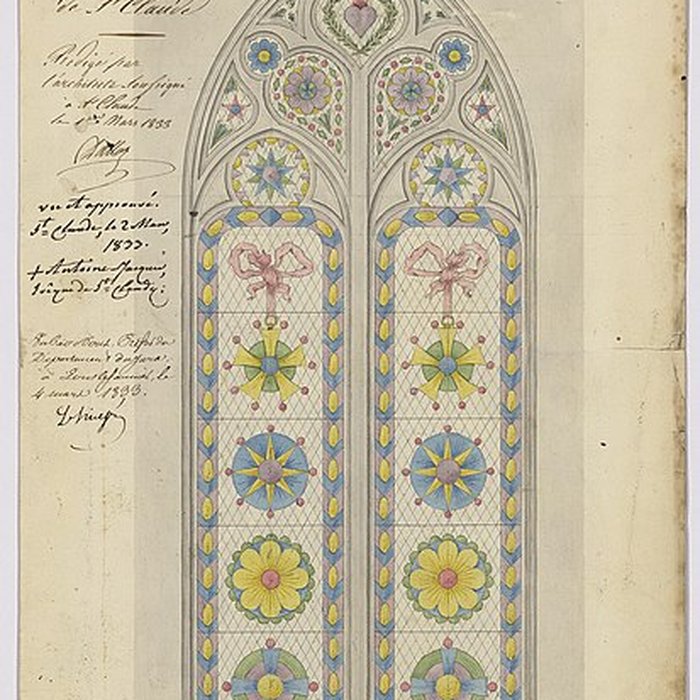 de St Claude
Rédigé par
l'architecte soussigné
à St Claude
le 1er Mars 1833
vu et approuvé.
St Claude, le 2 Mars,
1833.
+ Antoine Jacques,
Evêque de St Claude.
Vu par Nous, Préfet du
Département du Jura.
à Lons le Saunier, le
4 mars 1833.